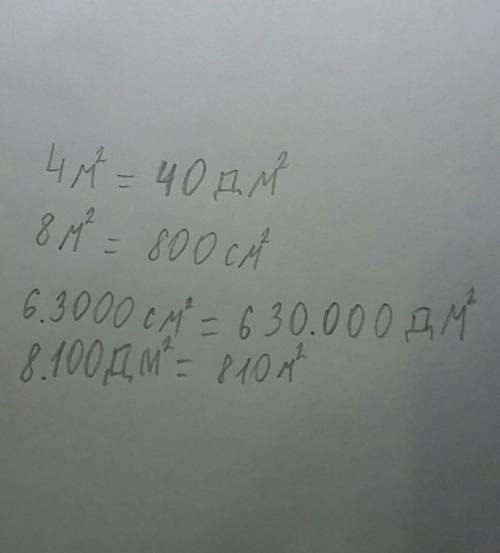 4м² = 40дм²
8м² = 800см²
6.3000см² = 630.000дм²
8.100дм² = 810м²